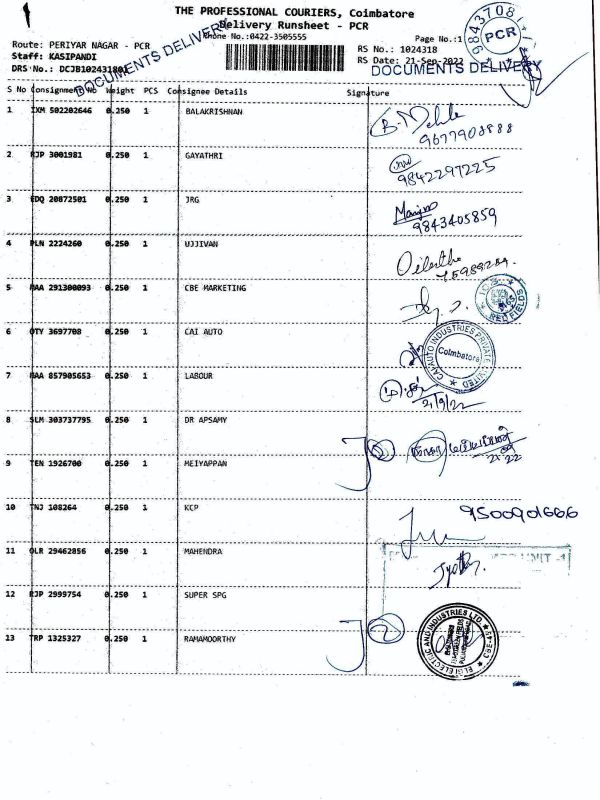 THE PROFESSIONAL COURIERS, Coimbatore
Delivery Runsheet - PCR
Phone No:0422-3505555
Page No.:1
Route: PERIYAR NAGAR - PCR
RS No.: 1024318
Staff: KASIPANDI
RS Date: 21-Sep-2022
DRS No.: DCJB102431801
DOCUMENTS DELIVERY
DOCUMENTS DELIVERY
PCR
S No Consignment No Weight PCS Consignee Details Signature
1 IXM 502202646 0.250 1 BALAKRISHNAN
9677908888
2 RJP 3001981 0.250 1 GAYATHRI
9842297225
3 EDQ 20872501 0.250 1 JRG
9843405859
4 PLN 2224260 0.250 1 UJJIVAN
5 MAA 291300093 0.250 1 CBE MARKETING
RED FIELDS
6 OTY 3697708 0.250 1 CAI AUTO
CAI AUTO INDUSTRIES PRIVATE LIMITED
Coimbatore
7 MAA 857905653 0.250 1 LABOUR
21/9/22
8 SLM 303737795 0.250 1 DR APSAMY
9 TEN 1926700 0.250 1 MEIYAPPAN
10 TNJ 108264 0.250 1 KCP
9500901666
11 OLR 29462856 0.250 1 MAHENDRA
Jyothi
12 RJP 2999754 0.250 1 SUPER SPG
13 TRP 1325327 0.250 1 RAMAMOORTHY
ELGI ELECTRIC AND INDUSTRIES LTD.